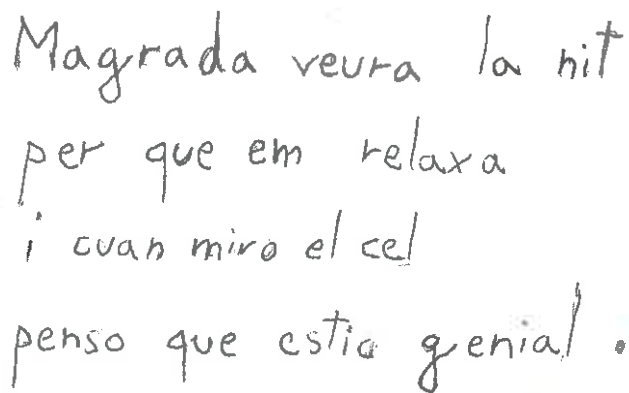 Magrada veura la nit
per que em relaxa
i cuan miro el cel
penso que estic genial.